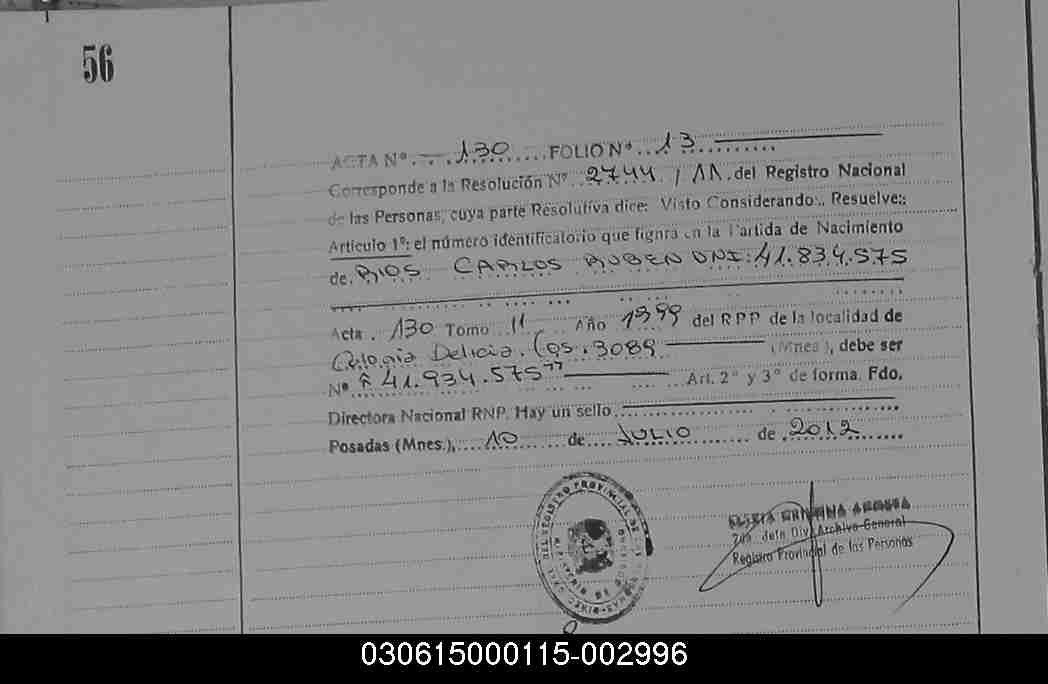 56
ACTA Nº.....130........FOLIO Nº...13..........
Corresponde a la Resolución Nº..2744./11.del Registro Nacional
de las Personas, cuya parte Resolutiva dice: Visto Considerando:. Resuelve:
Artículo 1º: el número identificatorio que figura en la Partida de Nacimiento
de. RIOS CARLOS RUBEN DNI:41.834.575
Acta. 130 Tomo..II... Año 1999 del RPP de la localidad de
Colonia Delicia. Cos.3089 (Mnes), debe ser
Nº "41.934.575" Art. 2º y 3º de forma. Fdo.
Directora Nacional RNP. Hay un sello
Posadas (Mnes.),....10.......de....JULIO........de.2012.......
CRISTINA ACOSTA
Jefe Div. Archivo General
Registro Provincial de las Personas
030615000115-002996